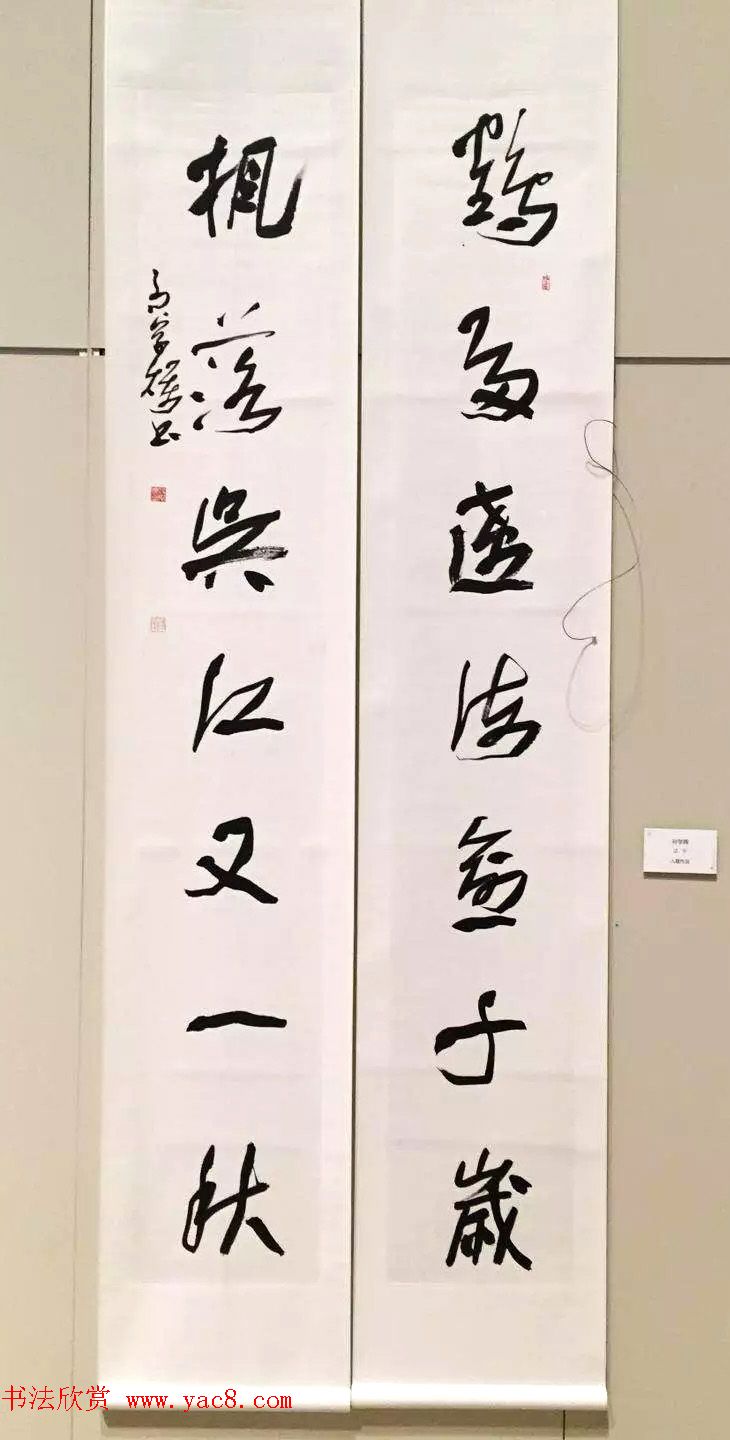 鶴歸遼海逾千歲
楓落吳江又一秋
书法欣赏 www.yac8.com